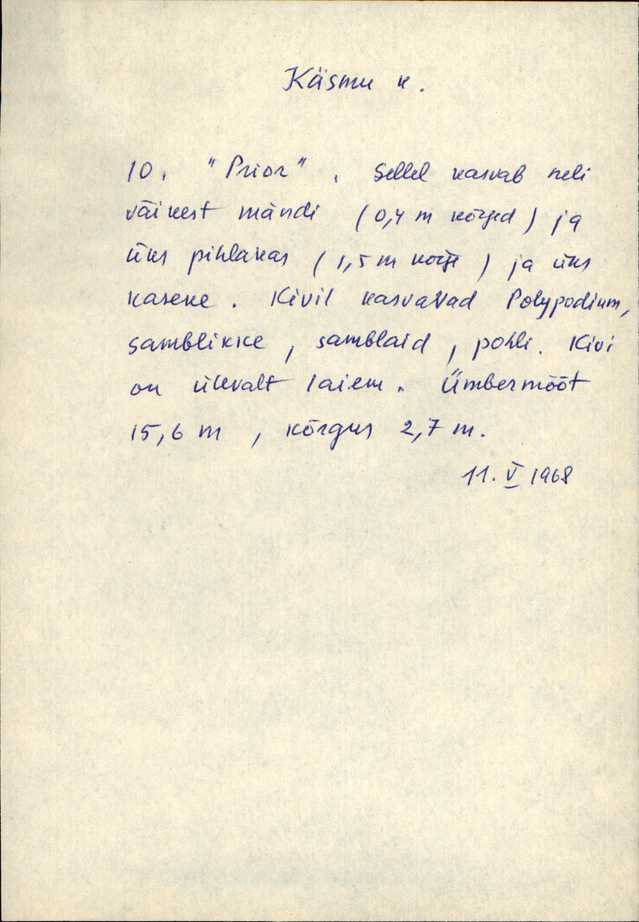 Käsmu k.
10. "Prior". Sellel kasvab neli
väikest mändi (0,4 m kõrged) ja
üks pihlakas (1,5 m kõrge) ja üks
kaseke. Kivil kasvavad Polypodium,
samblikke, samblaid, pohli. Kivi
on ülevalt laiem. Ümbermõõt
15,6 m, kõrgus 2,7 m.
11. V 1968